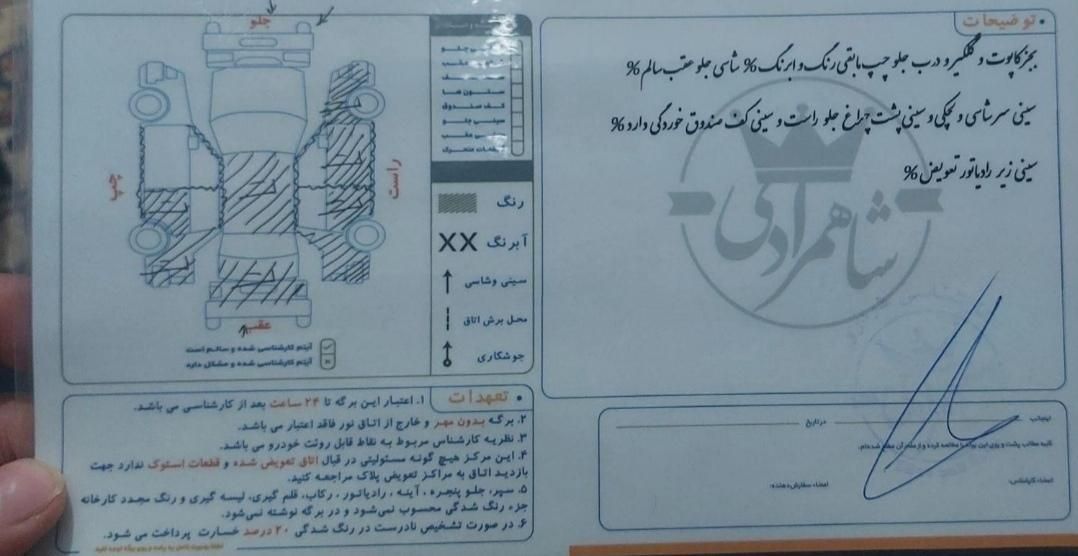 توضیحات
بجز کاپوت و گلگیر و درب جلو چپ مابقی رنگ و ابرنگ % شاسی جلو عقب سالم %
سینی سرشاسی و لچکی و سینی پشت چراغ جلو راست و سینی کف صندوق خوردگی دارد %
سینی زیر رادیاتور تعویض %
شاهمرادی
جلو
چپ
راست
عقب
ستون ها
کف صندوق
سینی جلو
رنگ
XX آبرنگ
سینی وشاسی
محل برش اتاق
جوشکاری
آیتم کارشناسی شده و سالم است
آیتم کارشناسی شده و مشکل دارد
تعهدات
۱. اعتبار این برگه تا ۲۴ ساعت بعد از کارشناسی می باشد.
۲. برگه بدون مهر و خارج از اتاق نور فاقد اعتبار می باشد.
۳. نظریه کارشناس مربوط به نقاط قابل روئت خودرو می باشد.
۴. این مرکز هیچ گونه مسئولیتی در قبال اتاق تعویض شده و قطعات استوک ندارد جهت
بازدید اتاق به مراکز تعویض پلاک مراجعه کنید.
۵. سپر، جلو پنجره، آینه، رادیاتور، رکاب، قلم گیری، لیسه گیری و رنگ مجدد کارخانه
جزء رنگ شدگی محسوب نمی‌شود و در برگه نوشته نمی‌شود.
۶. در صورت تشخیص نادرست در رنگ شدگی ۲۰ درصد خسارت پرداخت می شود.
اینجانب
درتاریخ
کلیه مطالب پشت و روی این برگه را مطالعه کرده و از مفاد آن مطلع شده‌ام.
امضاء کارشناس:
امضاء سفارش‌دهنده: